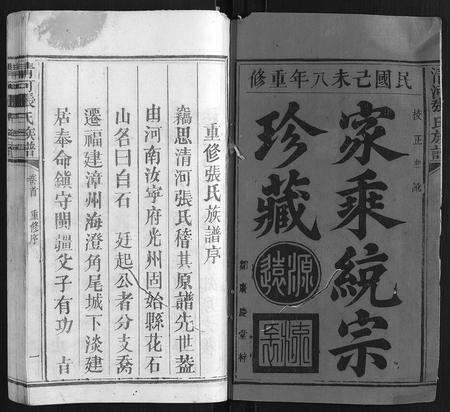 民國己未八年重修
家乘統宗
珍藏
源遠
流長
清河張氏族譜
重修張氏族譜序
竊思清河張氏稽其原譜先世葢
由河南汝寧府光州固始縣花石
山名曰白石 廷起公者分支喬
遷福建漳州海澄角尾城下淡建
居奉命鎮守閩疆父子有功 旨
清河張氏族譜
卷首 重修序
一